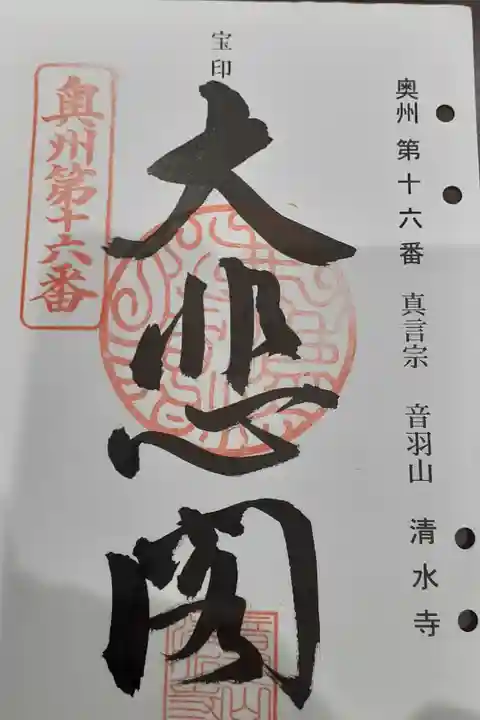 奥州 第十六番 真言宗 音羽山 清水寺
宝印
大悲閣
奥州第十六番